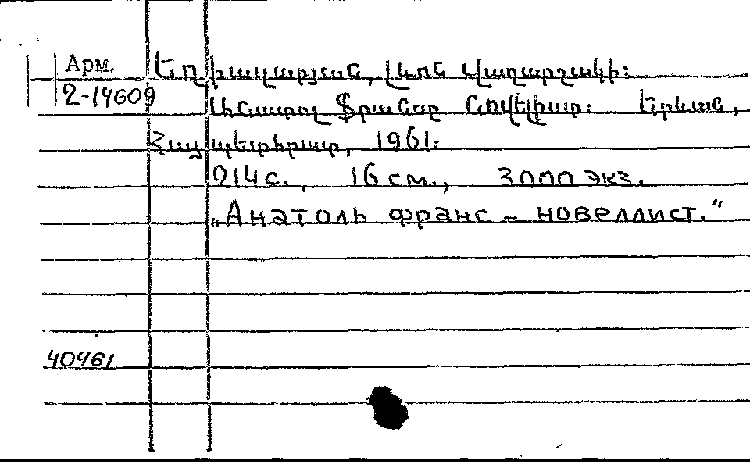 Арм.
2-14609
Եղիազարյան, Լևոն Վաղարշակի:
Անատոլ Ֆրանսը նովելիստ: Երևան,
Հայպետհրատ, 1961:
214 с., 16 см., 3000 экз.
„Анатоль франс – новеллист.“
40461